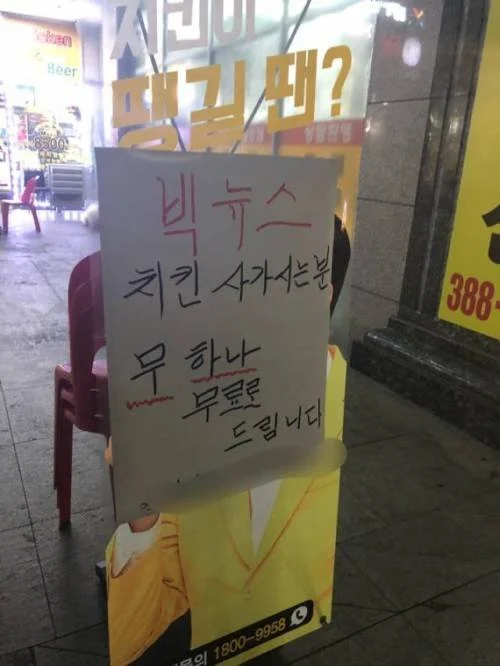 치킨이
땡길 땐?
Beer
8500
빅뉴스
치킨 사가시는분
무 하나
무료로
드립니다
388-
문의 1800-9958